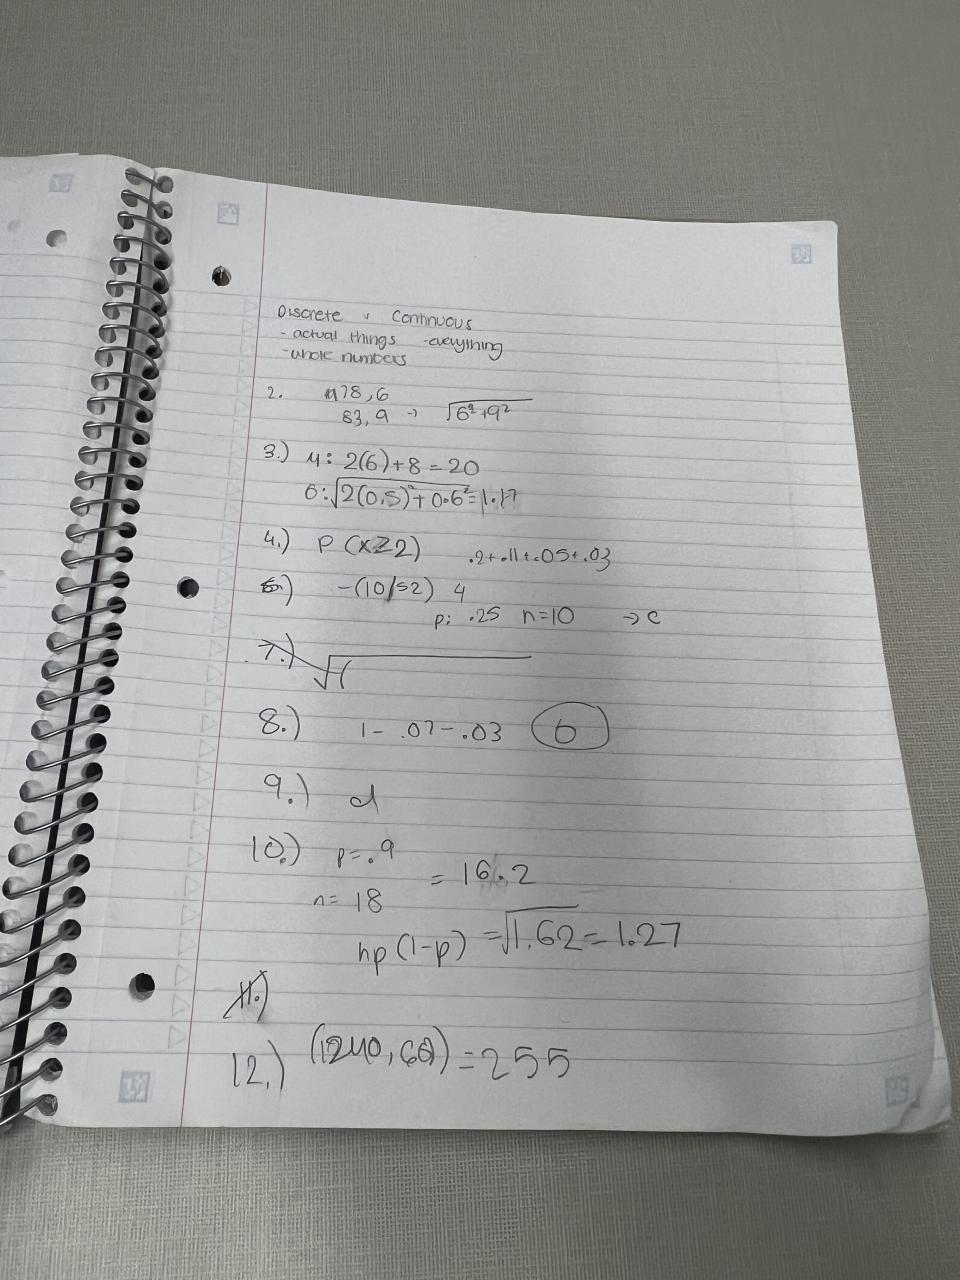 Discrete v Continuous
- actual things - everything
- whole numbers
2. M78,6
83,9 → √6²+9²
3.) μ: 2(6)+8=20
σ:√2(0.5)²+0.6²=1.17
4.) P(X≥2) .2+.11+.05+.03
6.) -(10/52) 4
p: .25 n=10 → c
7.) √(
8.) 1-.07-.03 b
9.) d
10.) p=.9
= 16.2
n= 18
np(1-p) =√1.62=1.27
11.)
12.) (1240,60)=255